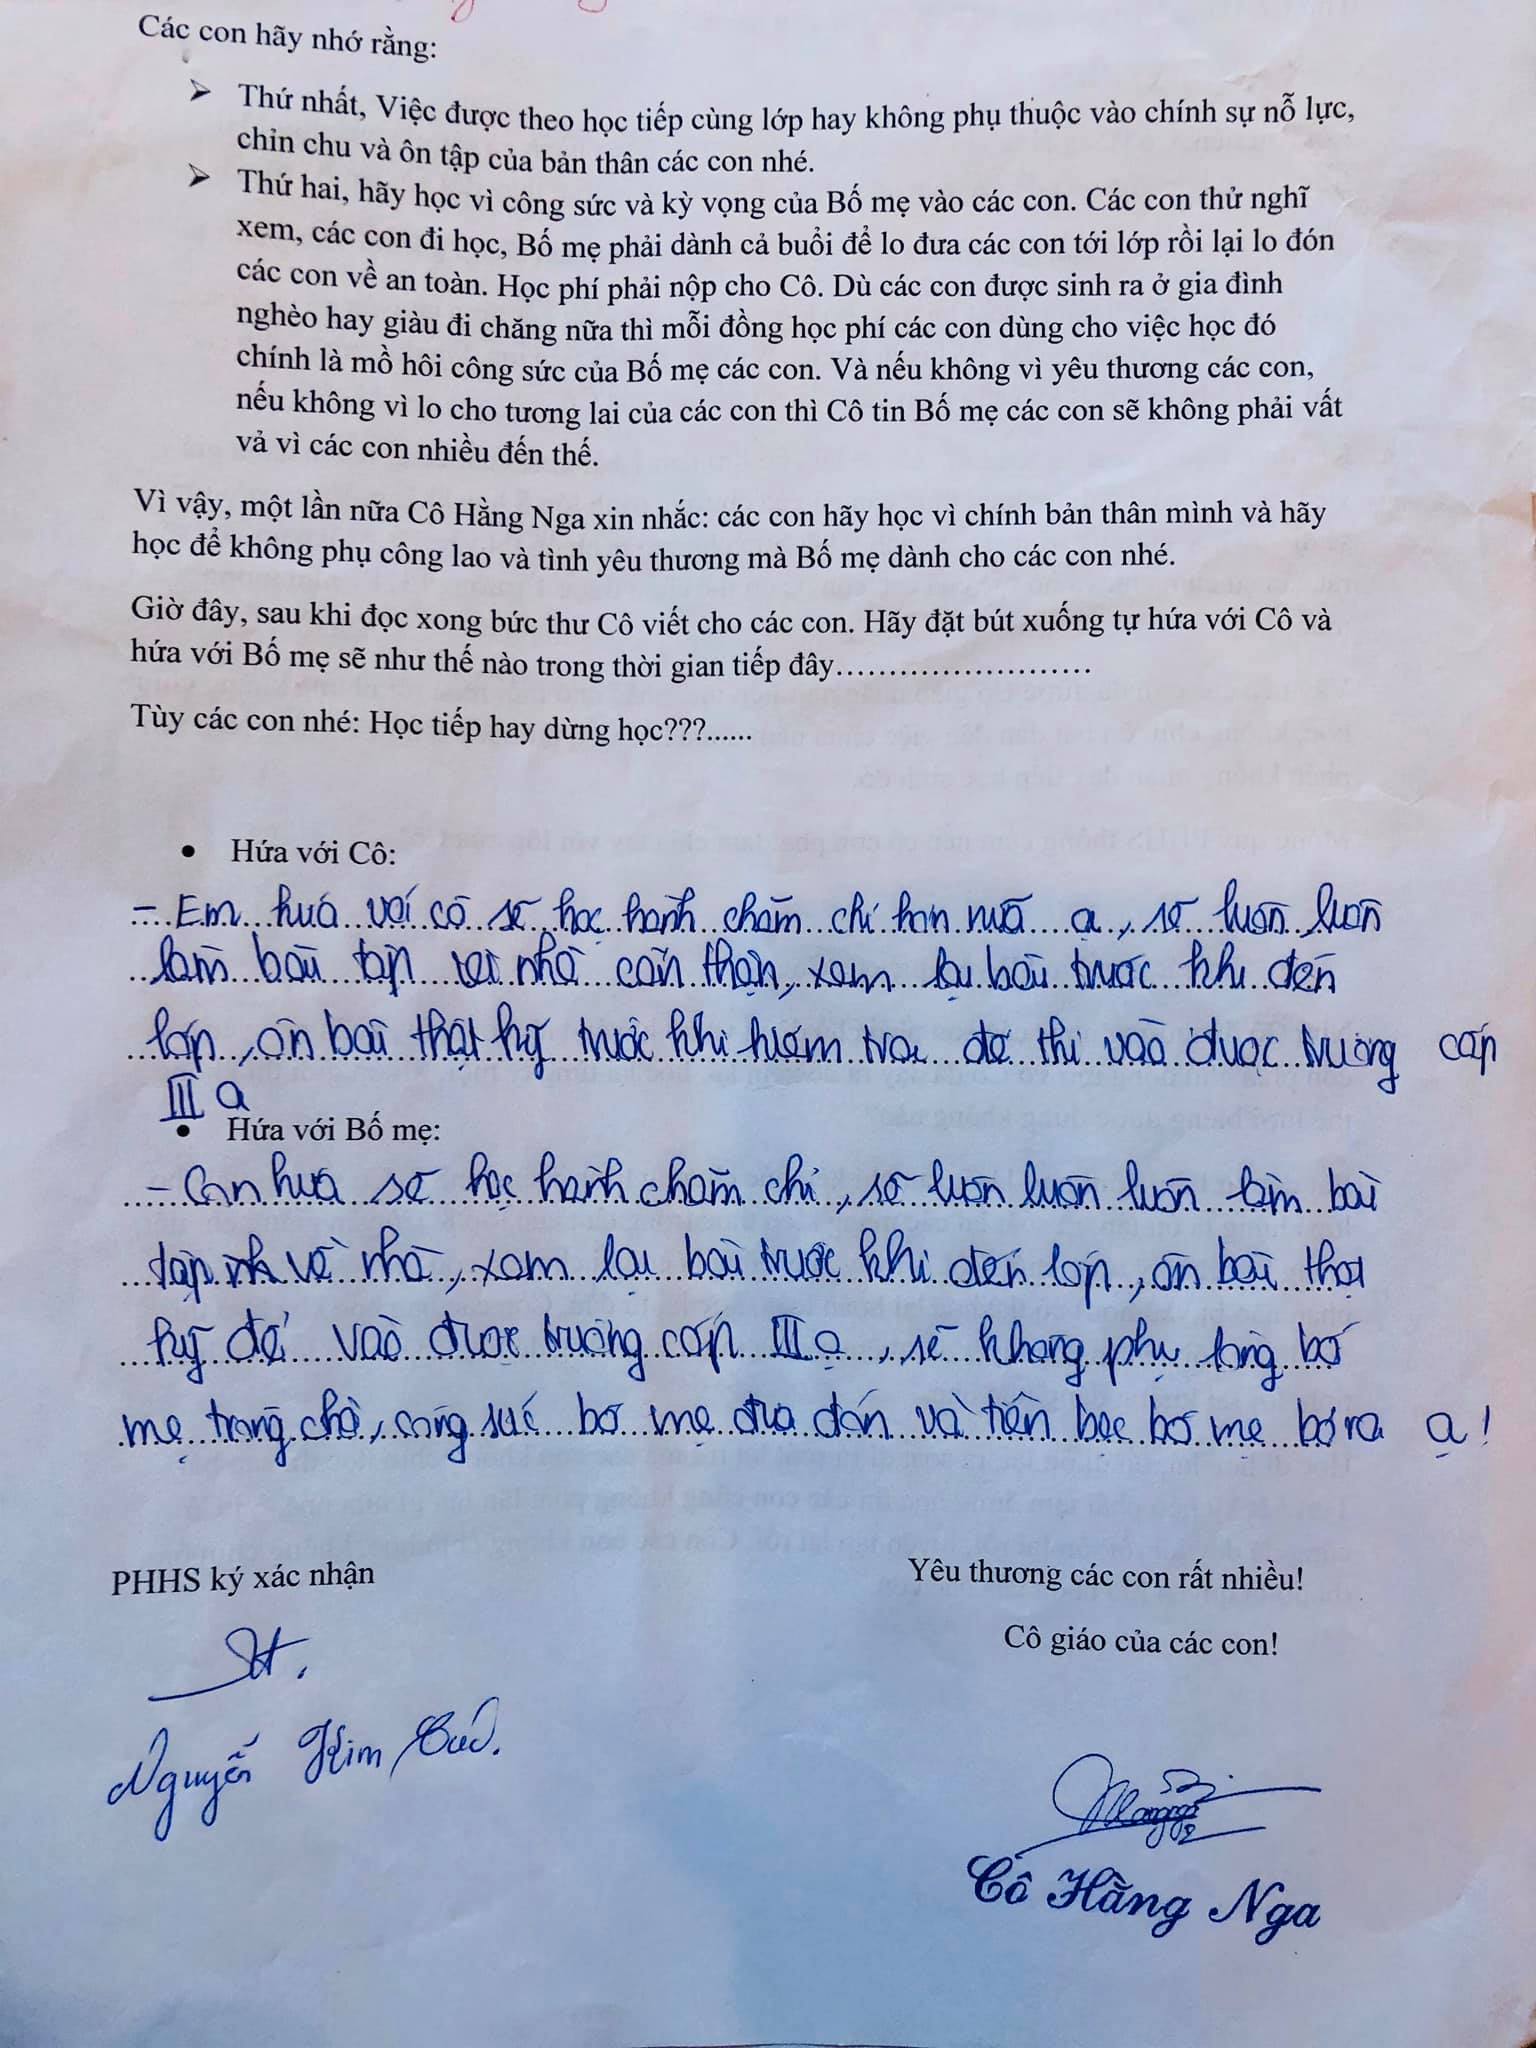 Các con hãy nhớ rằng:
➢ Thứ nhất, Việc được theo học tiếp cùng lớp hay không phụ thuộc vào chính sự nỗ lực,
chỉn chu và ôn tập của bản thân các con nhé.
➢ Thứ hai, hãy học vì công sức và kỳ vọng của Bố mẹ vào các con. Các con thử nghĩ
xem, các con đi học, Bố mẹ phải dành cả buổi để lo đưa các con tới lớp rồi lại lo đón
các con về an toàn. Học phí phải nộp cho Cô. Dù các con được sinh ra ở gia đình
nghèo hay giàu đi chăng nữa thì mỗi đồng học phí các con dùng cho việc học đó
chính là mồ hôi công sức của Bố mẹ các con. Và nếu không vì yêu thương các con,
nếu không vì lo cho tương lai của các con thì Cô tin Bố mẹ các con sẽ không phải vất
vả vì các con nhiều đến thế.
Vì vậy, một lần nữa Cô Hằng Nga xin nhắc: các con hãy học vì chính bản thân mình và hãy
học để không phụ công lao và tình yêu thương mà Bố mẹ dành cho các con nhé.
Giờ đây, sau khi đọc xong bức thư Cô viết cho các con. Hãy đặt bút xuống tự hứa với Cô và
hứa với Bố mẹ sẽ như thế nào trong thời gian tiếp đây........................
Tùy các con nhé: Học tiếp hay dừng học???......
• Hứa với Cô:
- Em hứa với cô sẽ học hành chăm chỉ hơn nữa ạ, sẽ luôn luôn
làm bài tập về nhà cẩn thận, xem lại bài trước khi đến
lớp, ôn bài thật kỹ trước khi để thi vào được trường cấp
III ạ
• Hứa với Bố mẹ:
- Con hứa sẽ học hành chăm chỉ, sẽ luôn luôn luôn làm bài
tập về nhà, xem lại bài trước khi đến lớp, ôn bài thật
kỹ để vào được trường cấp III ạ, sẽ không phụ lòng bố
mẹ trông chờ, công sức bố mẹ đưa đón và tiền bạc bố mẹ bỏ ra ạ!
PHHS ký xác nhận
Yêu thương các con rất nhiều!
Cô giáo của các con!
Nguyễn Kim
Cô Hằng Nga